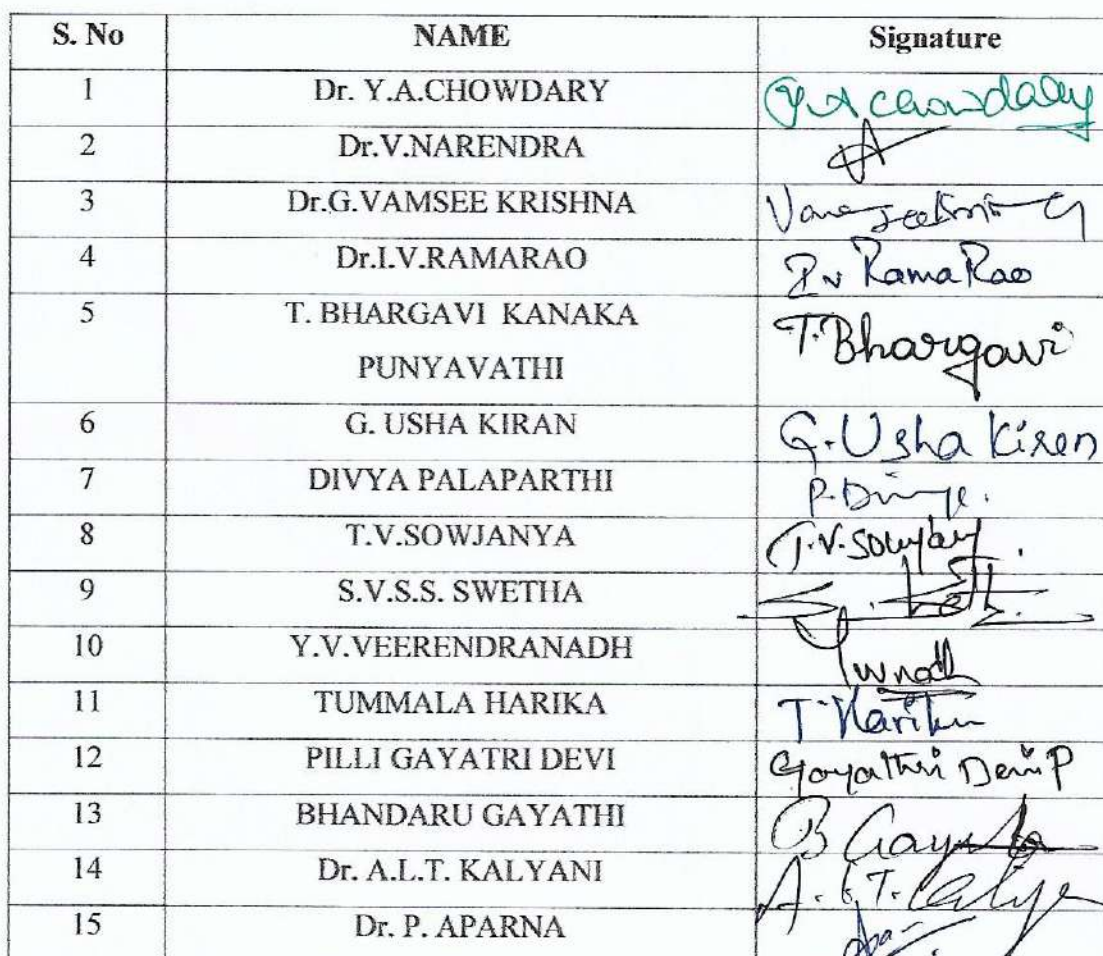 S. No NAME Signature
1 Dr. Y.A.CHOWDARY Y A Chowdary
2 Dr.V.NARENDRA
3 Dr.G.VAMSEE KRISHNA
4 Dr.I.V.RAMARAO I v Rama Rao
5 T. BHARGAVI KANAKA
PUNYAVATHI T. Bhargavi
6 G. USHA KIRAN G. Usha Kiren
7 DIVYA PALAPARTHI P. Divya.
8 T.V.SOWJANYA T.V. Sowjany
9 S.V.S.S. SWETHA
10 Y.V.VEERENDRANADH
11 TUMMALA HARIKA T Harika
12 PILLI GAYATRI DEVI Gayathri Devi P
13 BHANDARU GAYATHI B Gayatri
14 Dr. A.L.T. KALYANI A.L.T. Kalya
15 Dr. P. APARNA